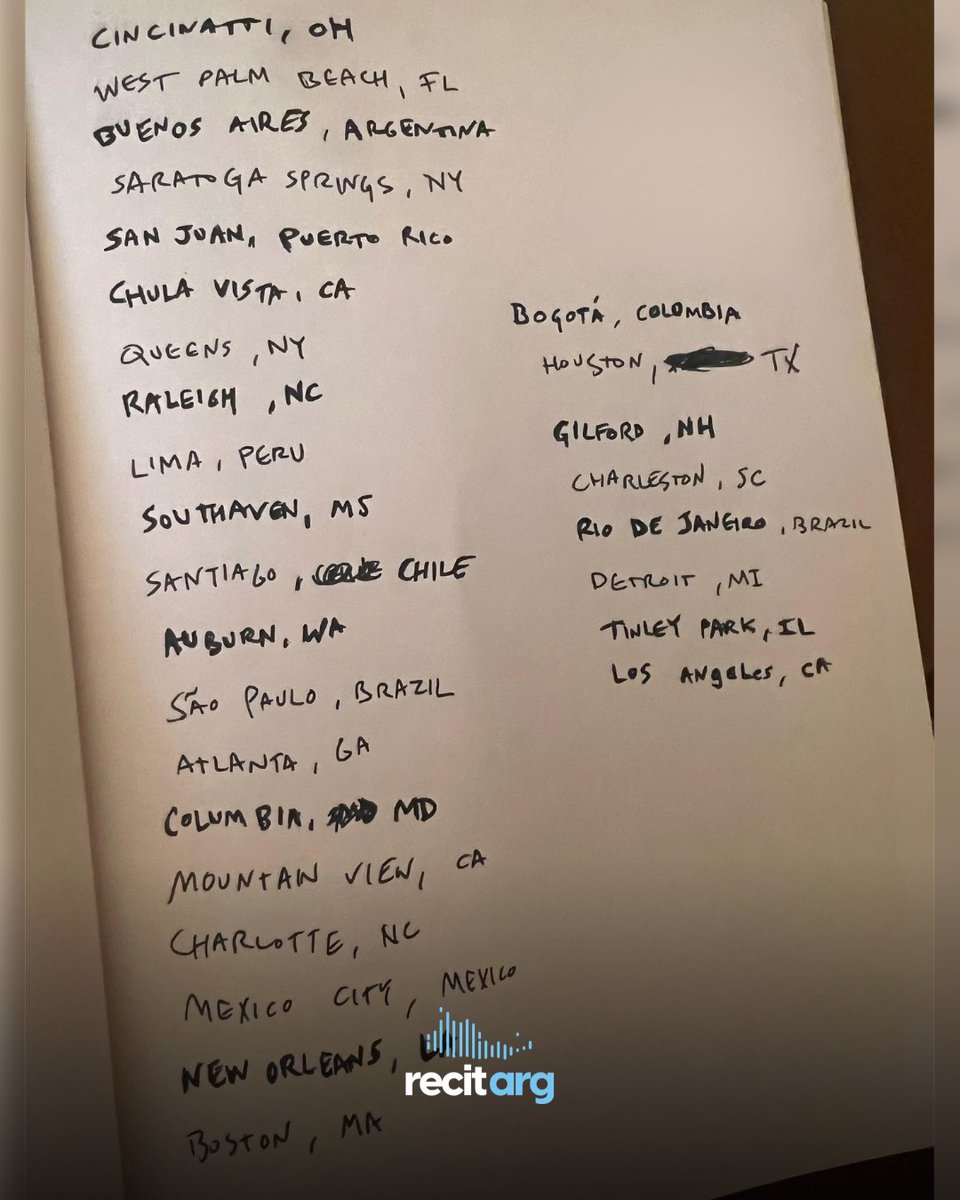 CINCINATTI, OH
WEST PALM BEACH, FL
BUENOS AIRES, ARGENTINA
SARATOGA SPRINGS, NY
SAN JUAN, PUERTO RICO
CHULA VISTA, CA
QUEENS, NY
RALEIGH, NC
LIMA, PERU
SOUTHAVEN, MS
SANTIAGO, CHILE
AUBURN, WA
SÃO PAULO, BRAZIL
ATLANTA, GA
COLUMBIA, MD
MOUNTAIN VIEW, CA
CHARLOTTE, NC
MEXICO CITY, MEXICO
NEW ORLEANS, LA
BOSTON, MA
BOGOTÁ, COLOMBIA
HOUSTON, TX
GILFORD, NH
CHARLESTON, SC
RIO DE JANEIRO, BRAZIL
DETROIT, MI
TINLEY PARK, IL
LOS ANgeLes, CA
recitarg